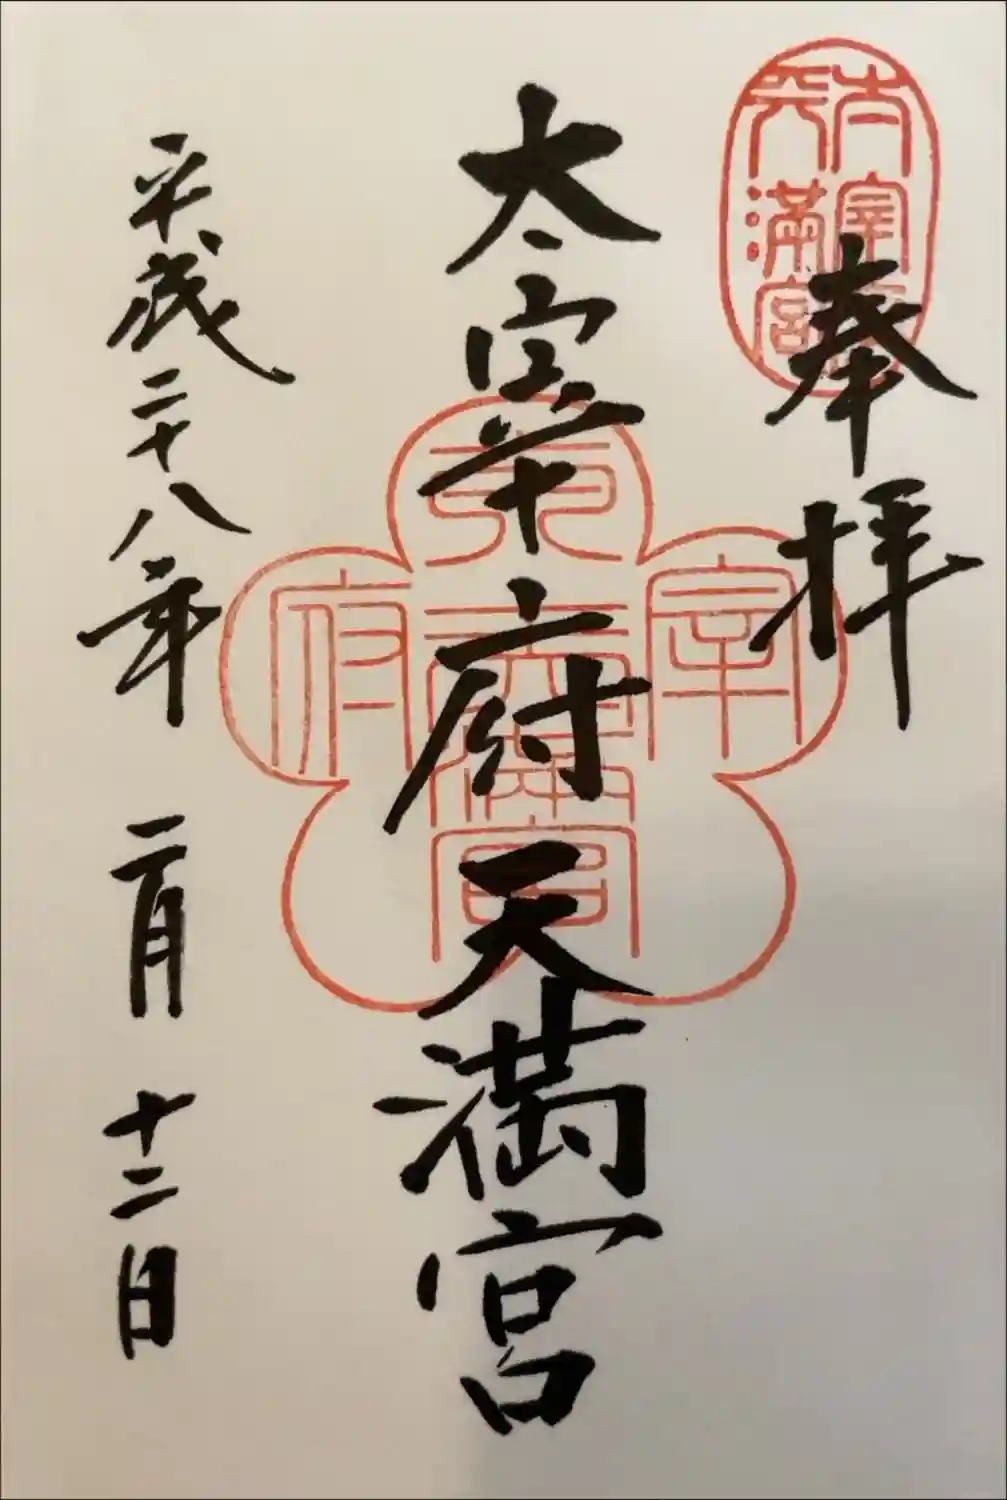 奉拝
太宰府天満宮
平成二十八年 二月 十二日
太宰府
天満宮